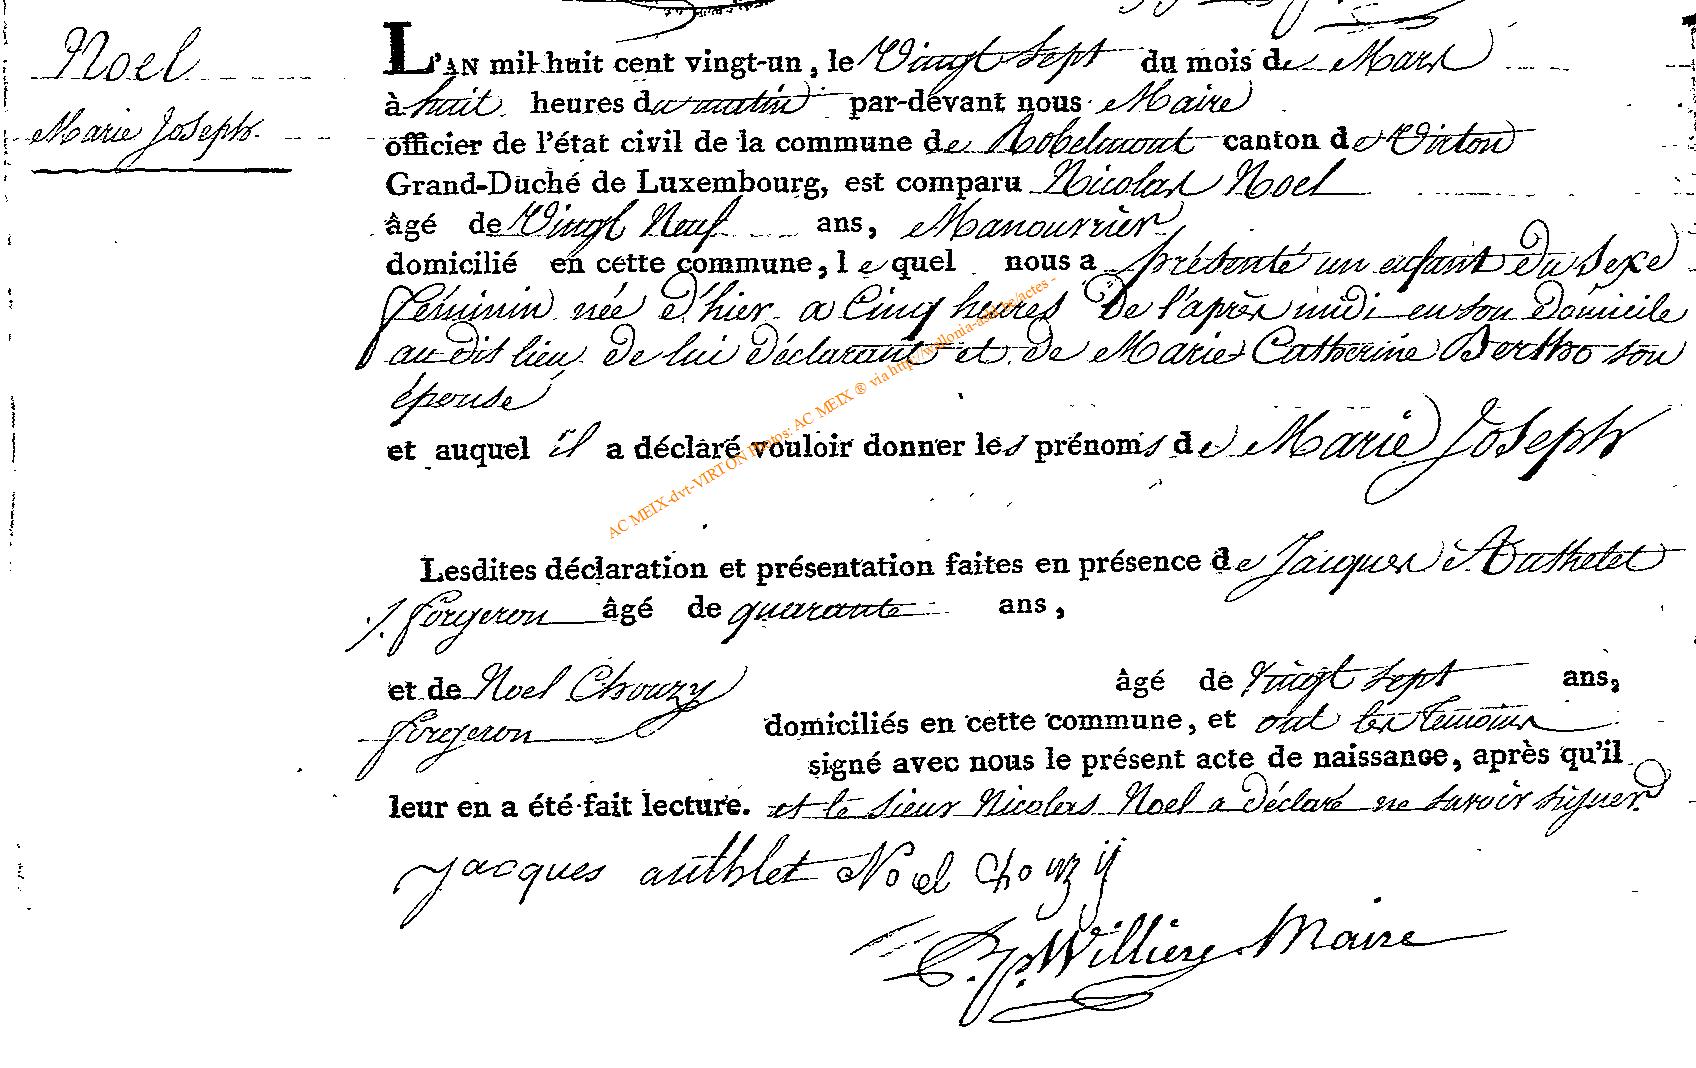 Noel
Marie Joseph
L'AN mil huit cent vingt-un, le Vingt Sept du mois de Mars
à huit heures du matin par-devant nous Maire
officier de l'état civil de la commune de Robelmont canton de Virton
Grand-Duché de Luxembourg, est comparu Nicolas Noel
âgé de Vingt Neuf ans, Manouvrier
domicilié en cette commune, lequel nous a présenté un enfant du Sexe
féminin née d'hier a Cinq heures de l'après midi en son Domicile
au dit lieu de lui déclarant et de Marie Catherine Bertho son
épouse
et auquel il a déclaré vouloir donner les prénoms de Marie Joseph
AC MEIX-dvt-VIRTON Photos: AC MEIX ® via http://wallonia-asbl.be/actes -
Lesdites déclaration et présentation faites en présence de Jacques Authelet
forgeron âgé de quarante ans,
et de Noel Chouzy âgé de vingt sept ans,
forgeron domiciliés en cette commune, et ont les temoins
signé avec nous le présent acte de naissance, après qu'il
leur en a été fait lecture. et le sieur Nicolas Noel a déclaré ne savoir signer
Jacques authlet Noel Chouzy
Willière Maire